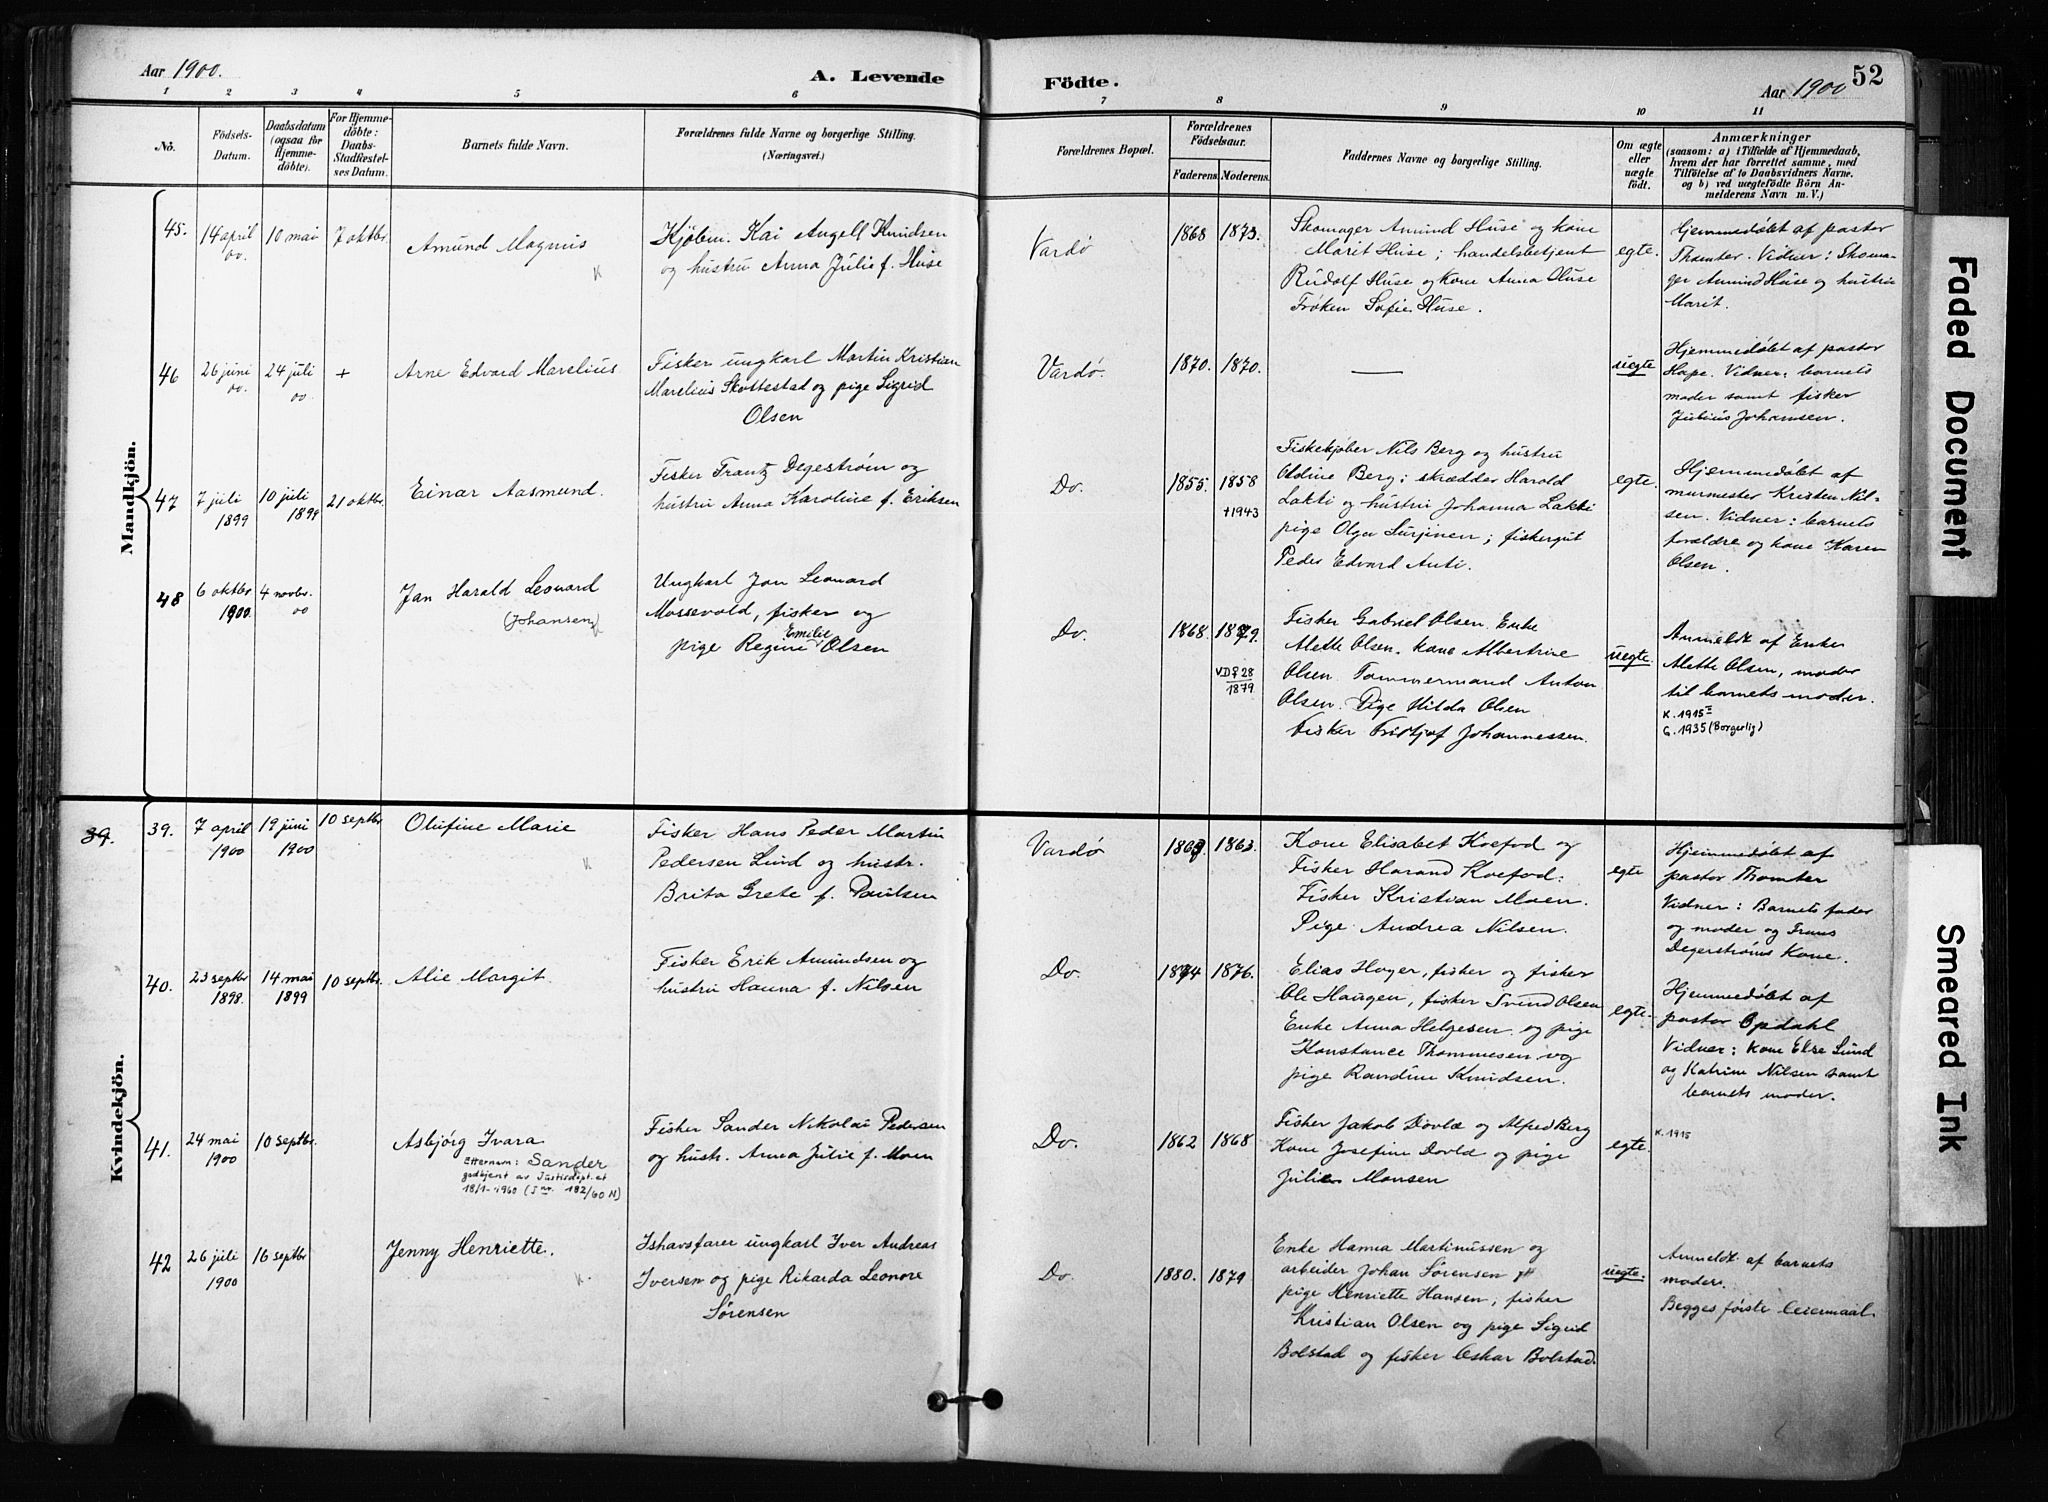 Aar 1900.
A. Levende
Födte.
Aar 1900
52
1 2 3 4 5 6 7 8 9 10 11
No.
Födsels-
Datum.
Daabsdatum
(ogsaa for
Hjemme-
döbte).
For Hjemme-
döbte:
Daabs-
Stadfæstel-
ses Datum.
Barnets fulde Navn.
Forældrenes fulde Navne og borgerlige Stilling.
(Næringsvei.)
Forældrenes Bopæl.
Forældrenes
Födselsaar.
Faderens. Moderens.
Faddernes Navne og borgerlige Stilling.
Om ægte
eller
uægte
födt.
Anmærkninger
(saasom: a) i Tilfælde af Hjemmedaab,
hvem der har forrettet samme, med
Tilföielse af to Daabsvidners Navne,
og b) ved uægtefödte Börn An-
melderens Navn m. V.)
Mandkjön.
45.
14 april
00.
10 mai
7 oktbr
Amund Magnus
K
Kjøbm. Kai Angell Knudsen
og hustru Anna Julie f. Huse
Vardø
1868 1873.
Skomager Amund Huse og kone
Marit Huse; handelsbetjent
Rudolf Huse og kone Anna Huse
Frøken Sofie Huse.
egte.
Hjemmedøbt af pastor
Thomter. Vidner: Skoma-
ger Amund Huse og hustru
Marit.
46
26 juni
00.
24 juli
00
+
Arne Edvard Marelius
Fisker ungkarl Martin Kristian
Marelius Skottestad og pige Sigrid
Olsen
Vardø.
1870. 1870.
—
uegte
Hjemmedøbt af pastor
Hape. Vidner: barnets
moder samt fisker
Julius Johansen.
47
7 juli
1899
10 juli
1899
21 oktbr.
Einar Aasmund.
Fisker Frantz Degestrøm og
hustru Anna Karoline f. Eriksen
Do.
1855. 1858
†1943
Fiskekjøber Nils Berg og hustru
Oldine Berg; skrædder Harold
Lakti og hustru Johanna Lakti
pige Olga Surjinen; fiskergut
Peder Edvard Anti.
egte.
Hjemmedøbt af
murmester Kristen Nil-
sen. Vidner: barnets
forældre og kone Karen
Olsen.
48
6 oktbr.
1900.
4 novbr.
00
Jan Harald Leonard
(Johansen)
Ungkarl Jon Leonard
Mossevold, fisker og
pige Regine Emilie Olsen
Do.
1868. 1879.
VDF 28
1879
Fisker Gabriel Olsen. Enke
Alette Olsen. kone Albertine
Olsen. Tømmermand Anton
Olsen. Pige Hilda Olsen
Fisker Fridtjof Johannessen.
uegte.
Anmeldt af Enke
Alette Olsen, moder
til barnets moder.
K. 1915
G. 1935 (Borgerlig)
Kvindekjön.
39.
39.
7 april
1900
19 juni
1900
10 septbr
Olufine Marie
K
Fisker Hans Peder Martin
Pedersen Lund og hustr.
Brita Grete f. Paulsen
Vardø
1863.
Kone Elisabet Koefod og
Fisker Harand Koefod.
Fisker Kristian Moen.
Pige Andrea Nilsen.
egte
Hjemmedøbt af
pastor Thomter
Vidner: Barnets fader
og moder og Frans
Degerstrøms Kone.
40.
23 septbr
1898.
14 mai
1899
10 septbr.
Alie Margit.
Fisker Erik Amundsen og
hustru Hanna f. Nilsen
Do.
1874 1876.
Elias Hoyer, fisker og fisker
Ole Haugen, fisker Svend Olsen
Enke Anna Helgesen og pige
Konstance Thommesen og
pige Randine Knudsen.
egte.
Hjemmedøbt af
pastor Opdahl
Vidner: Kone Elre Lund
og Katrine Nilsen samt
barnets moder.
41.
24 mai
1900
10 septbr.
Asbjørg Ivara
Etternavn: Sander
godkjent av Justisdept. et
18/1-1960 (Jnr. 182/60 N)
Fisker Sander Nikolai Pedersen
og hustr. Anna Julie f. Moen
Do.
1862 1868
Fisker Jakob Dovld og Alfred Berg
Kone Josefine Dovld og pige
Julie Monsen
egte.
K. 1915
42
26 juli
1900
16 septbr
Jenny Henriette.
K.
Ishavsfarer ungkarl Iver Andreas
Iversen og pige Rikarda Leonore
Sørensen
Do.
1880. 1879
Enke Hanna Martinussen og
arbeider Johan Sørensen
pige Henriette Hansen; fisker
Kristian Olsen og pige Sigrid
Bolstad og fisker Oskar Bolstad.
uegte.
Anmeldt af barnets
moder.
Begges første leiermaal
Faded Document
Smeared Ink